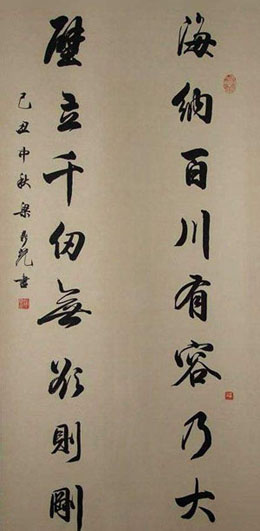 海納百川有容乃大
壁立千仞無欲則剛
己丑中秋梁
書